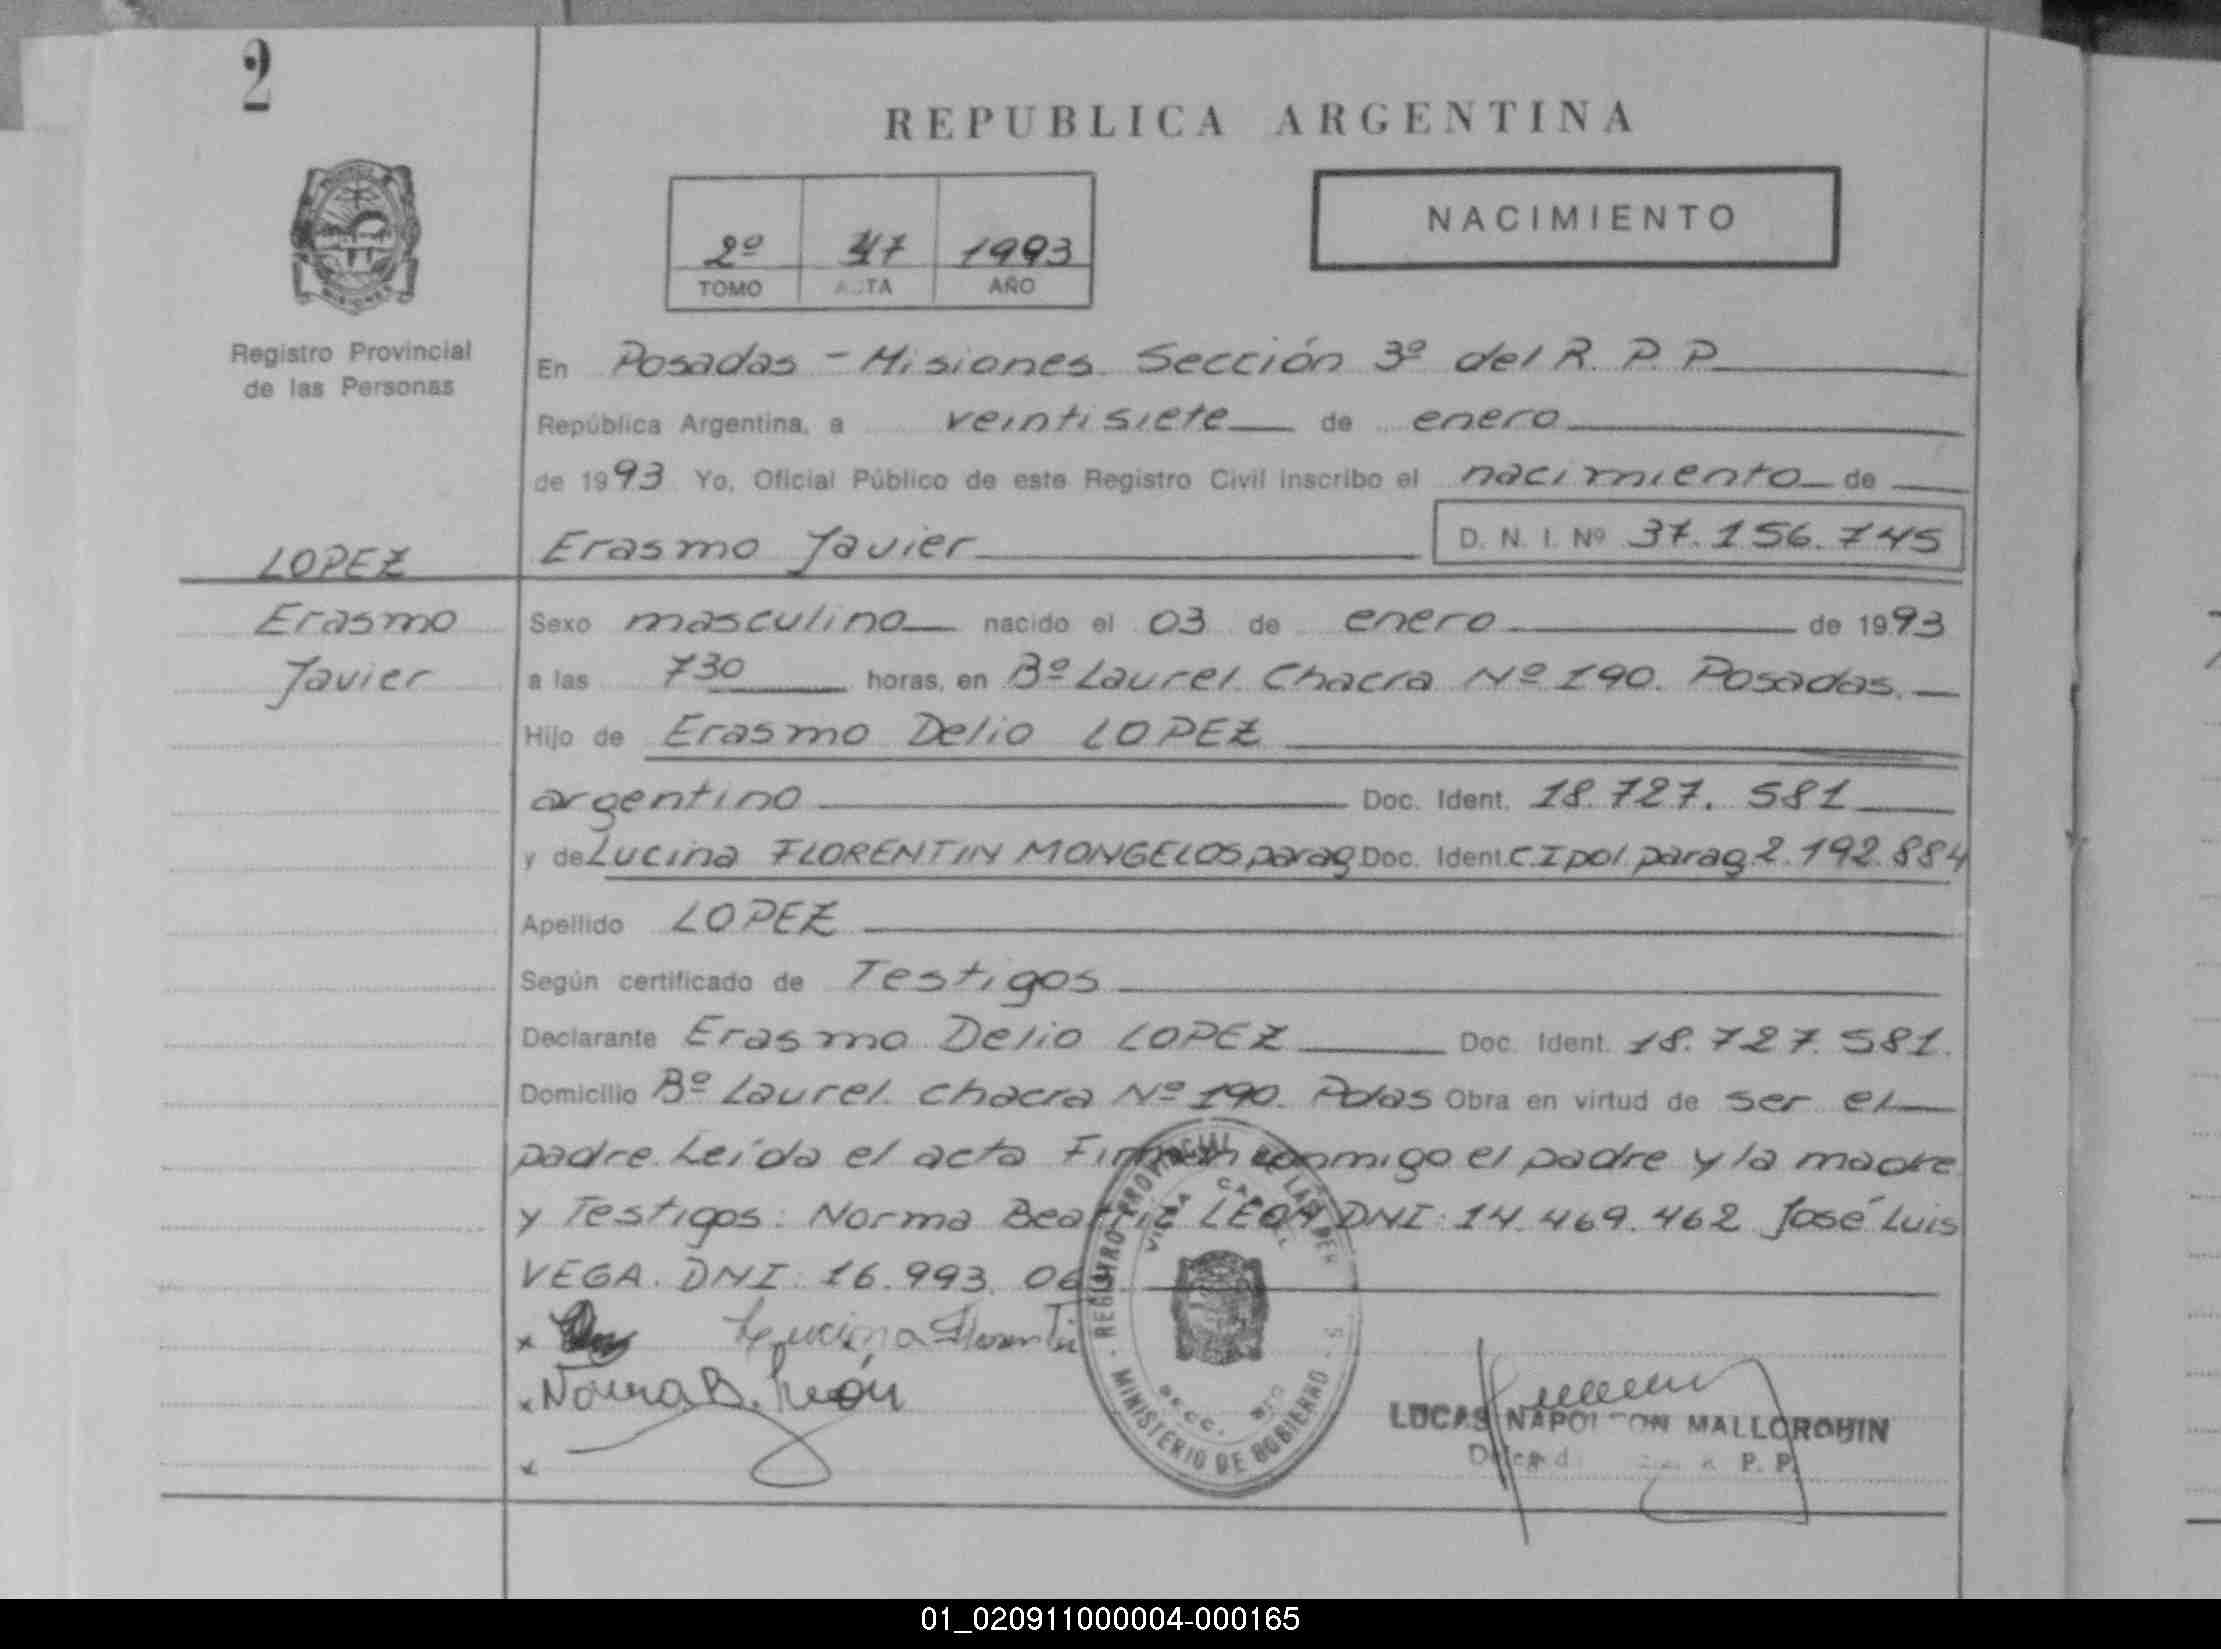 2
REPUBLICA ARGENTINA
NACIMIENTO
2º 47 1993
TOMO ACTA AÑO
MISIONES
Registro Provincial
de las Personas
En Posadas - Misiones. Sección 3º del R. P. P.
República Argentina, a veintisiete de enero
de 1993 Yo, Oficial Público de este Registro Civil inscribo el nacimiento de
LOPEZ Erasmo Javier D. N. I. Nº 37.156.745
Erasmo Sexo masculino nacido el 03 de enero de 1993
Javier a las 730 horas, en Bº Laurel. Chacra Nº 190. Posadas.
Hijo de Erasmo Delio LOPEZ
argentino Doc. Ident. 18.727.581
y de Lucina FLORENTIN MONGELOS parag Doc. Ident. C I pol parag 2.192.884
Apellido LOPEZ
Según certificado de Testigos
Declarante Erasmo Delio LOPEZ Doc. Ident. 18.727.581.
Domicilio Bº Laurel. Chacra Nº 190. Pdas Obra en virtud de ser el
padre. Leída el acta Firman conmigo el padre y la madre
y Testigos: Norma Beatriz LEON DNI: 14.469.462 José Luis
VEGA. DNI: 16.993.06
Lucina Florentin
Norma B. León
REGISTRO PROVINCIAL DE LAS PER S
VILLA CABELL
SECC.
MINISTERIO DE GOBIERNO
LUCAS NAPOLEON MALLORQUIN
P. P.
01_020911000004-000165